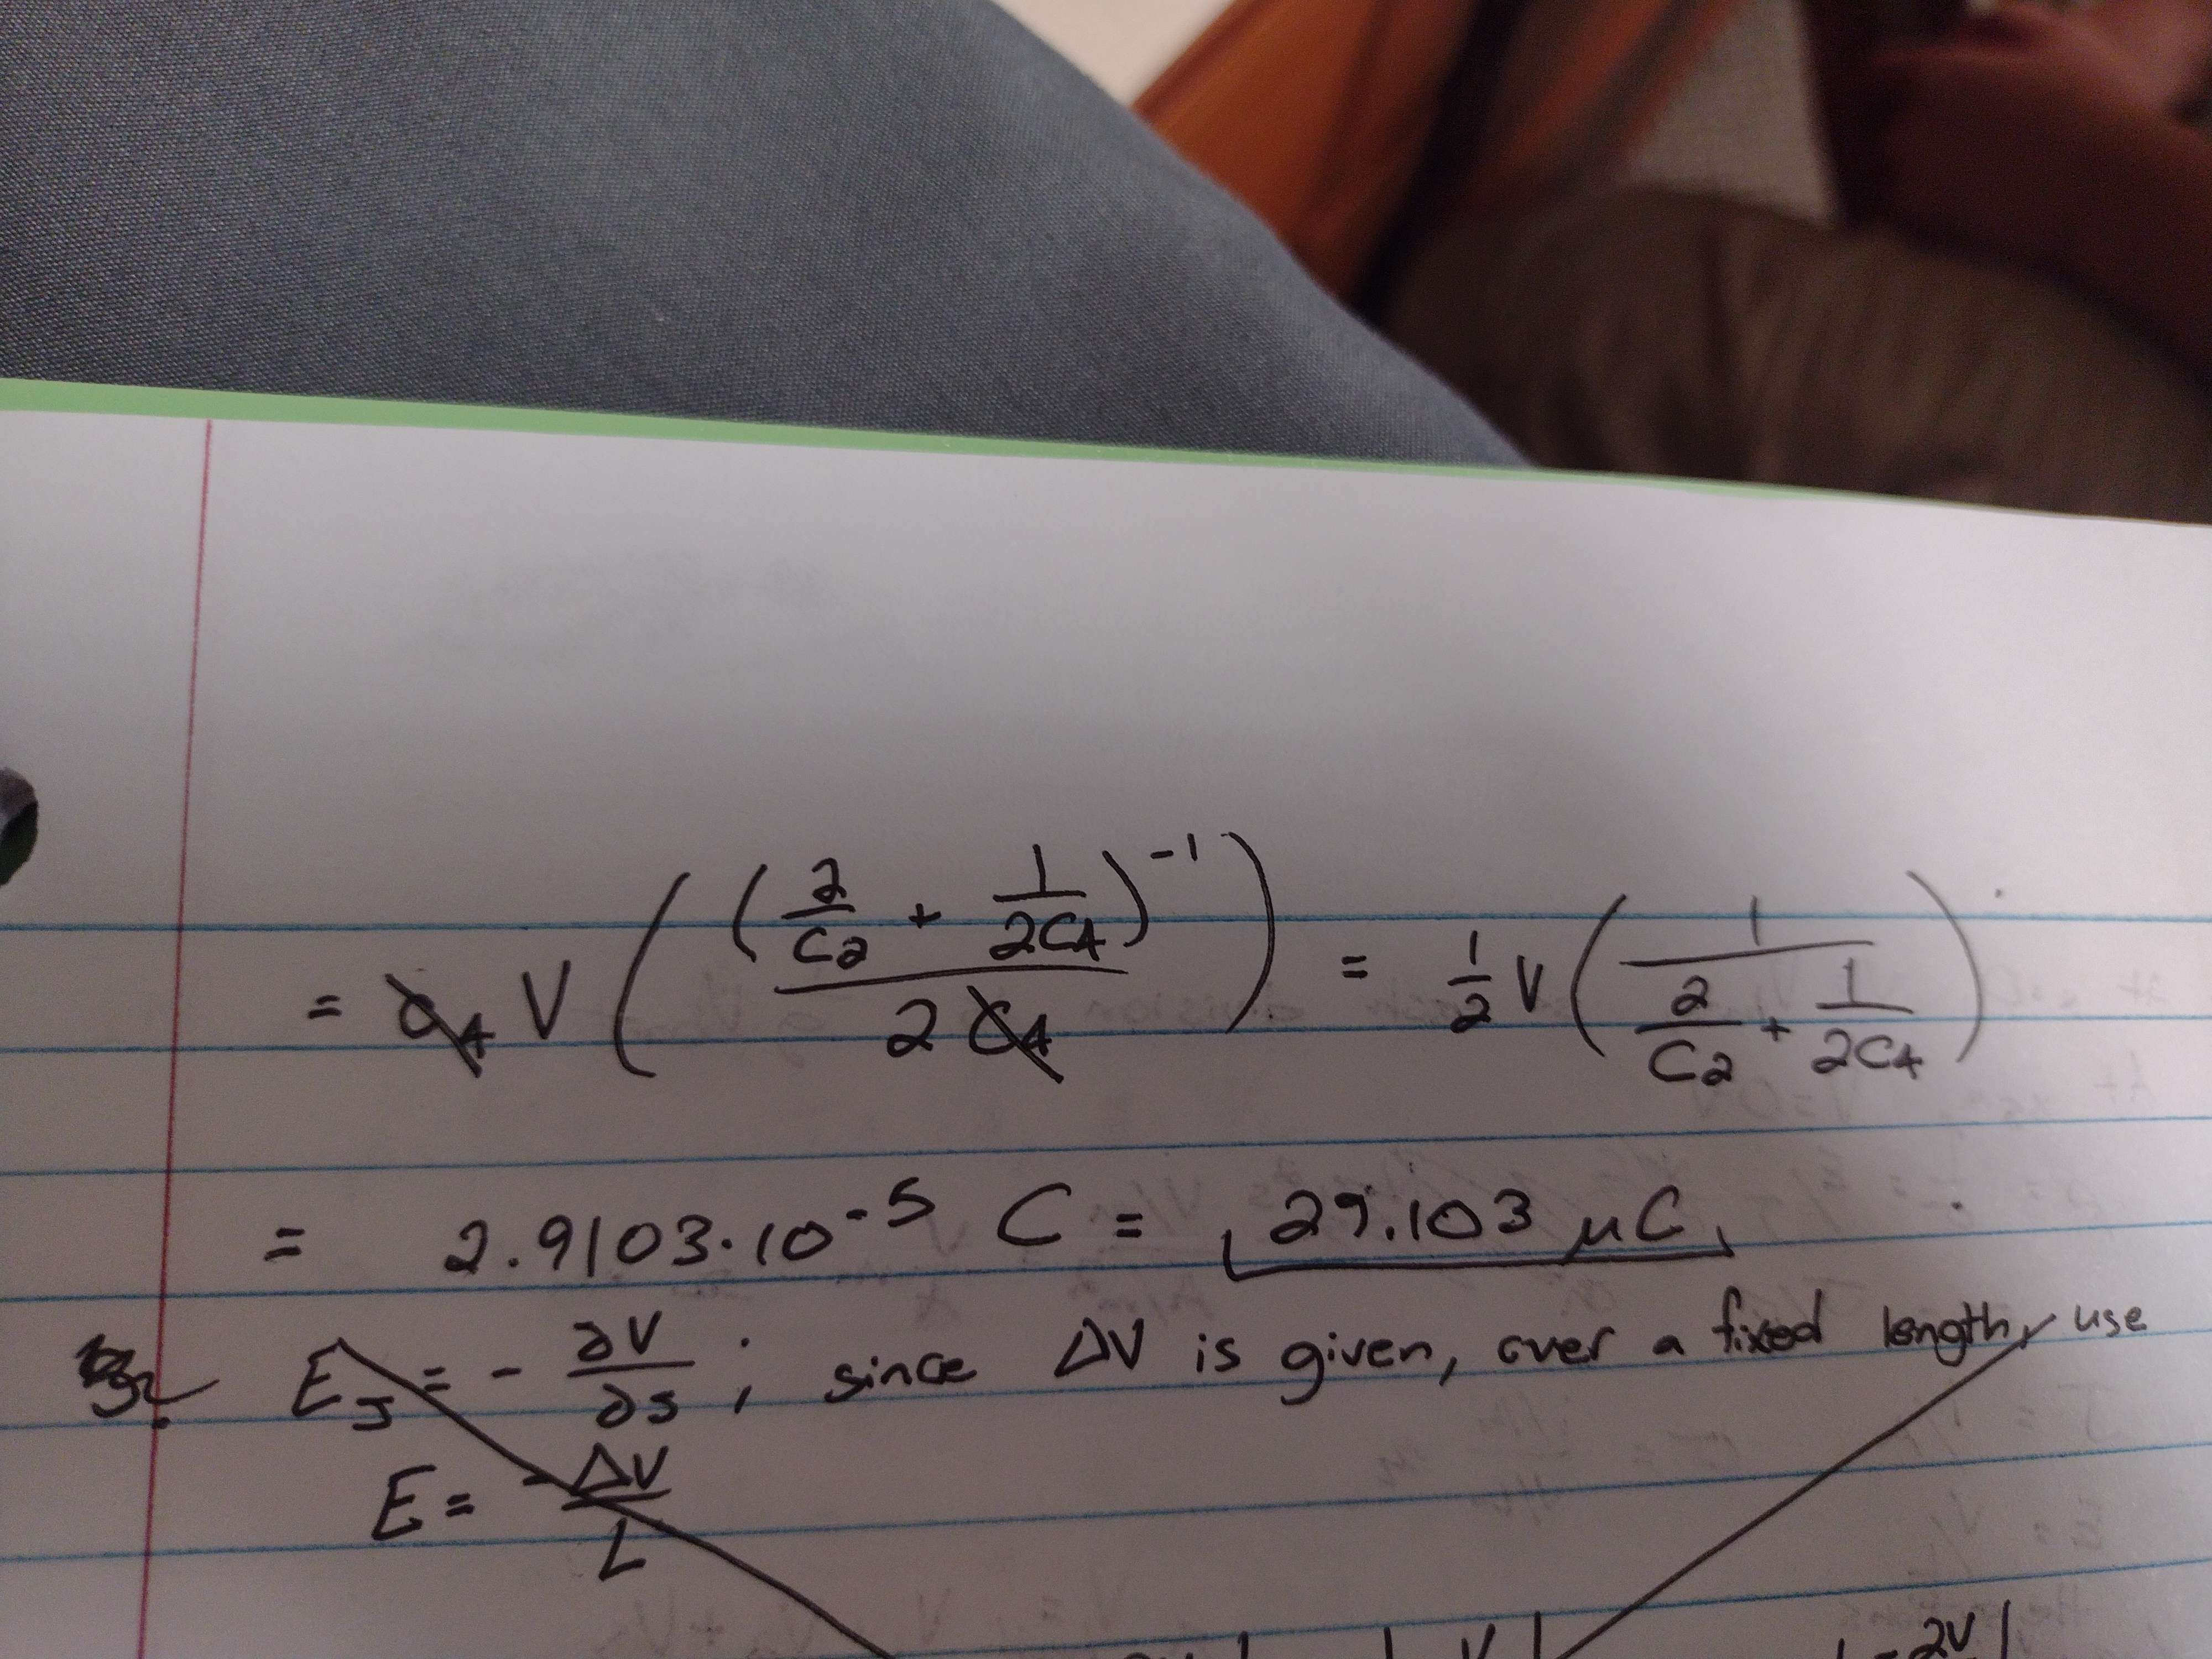 = C4 V ( (2/C2 + 1/2C4)^-1 / 2C4 ) = 1/2 V ( 1 / (2/C2 + 1/2C4) )
= 2.9103·10^-5 C = 29.103 μC
E_s = - ∂V/∂s ; since ΔV is given, over a fixed length, use
E = -ΔV/L